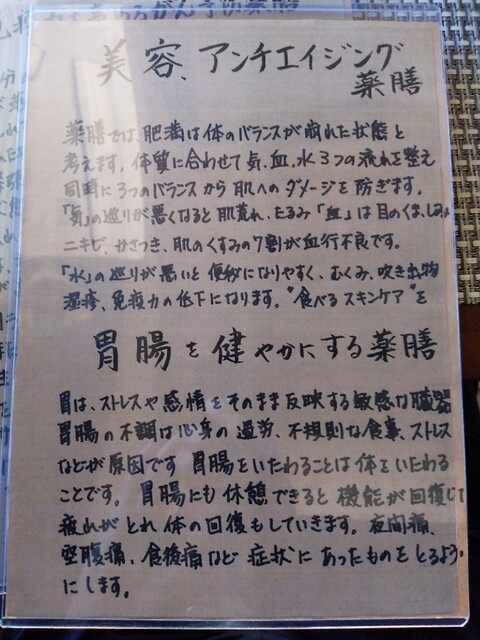 美容、アンチエイジング
薬膳
薬膳では、肥満は体のバランスが崩れた状態と
考えます。体質に合わせて気、血、水3つの流れを整え
同時に3つのバランスから肌へのダメージを防ぎます。
「気」の巡りが悪くなると肌荒れ、たるみ「血」は目のくま、しみ、
ニキビ、かさつき、肌のくすみの7割が血行不良です。
「水」の巡りが悪いと便秘になりやすく、むくみ、吹き出物
湿疹、免疫力の低下になります。"食べるスキンケア"を
胃腸を健やかにする薬膳
胃は、ストレスや感情をそのまま反映する敏感な臓器
胃腸の不調は心身の過労、不規則な食事、ストレス
などが原因です 胃腸をいたわることは体をいたわる
ことです。胃腸にも休憩できると機能が回復して
疲れがとれ体の回復もしていきます。夜間痛、
空腹痛、食後痛など症状にあったものをとるよう
にします。